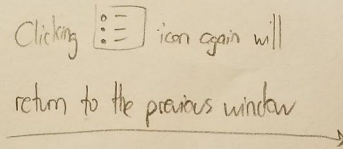 Clicking icon again will
return to the previous window